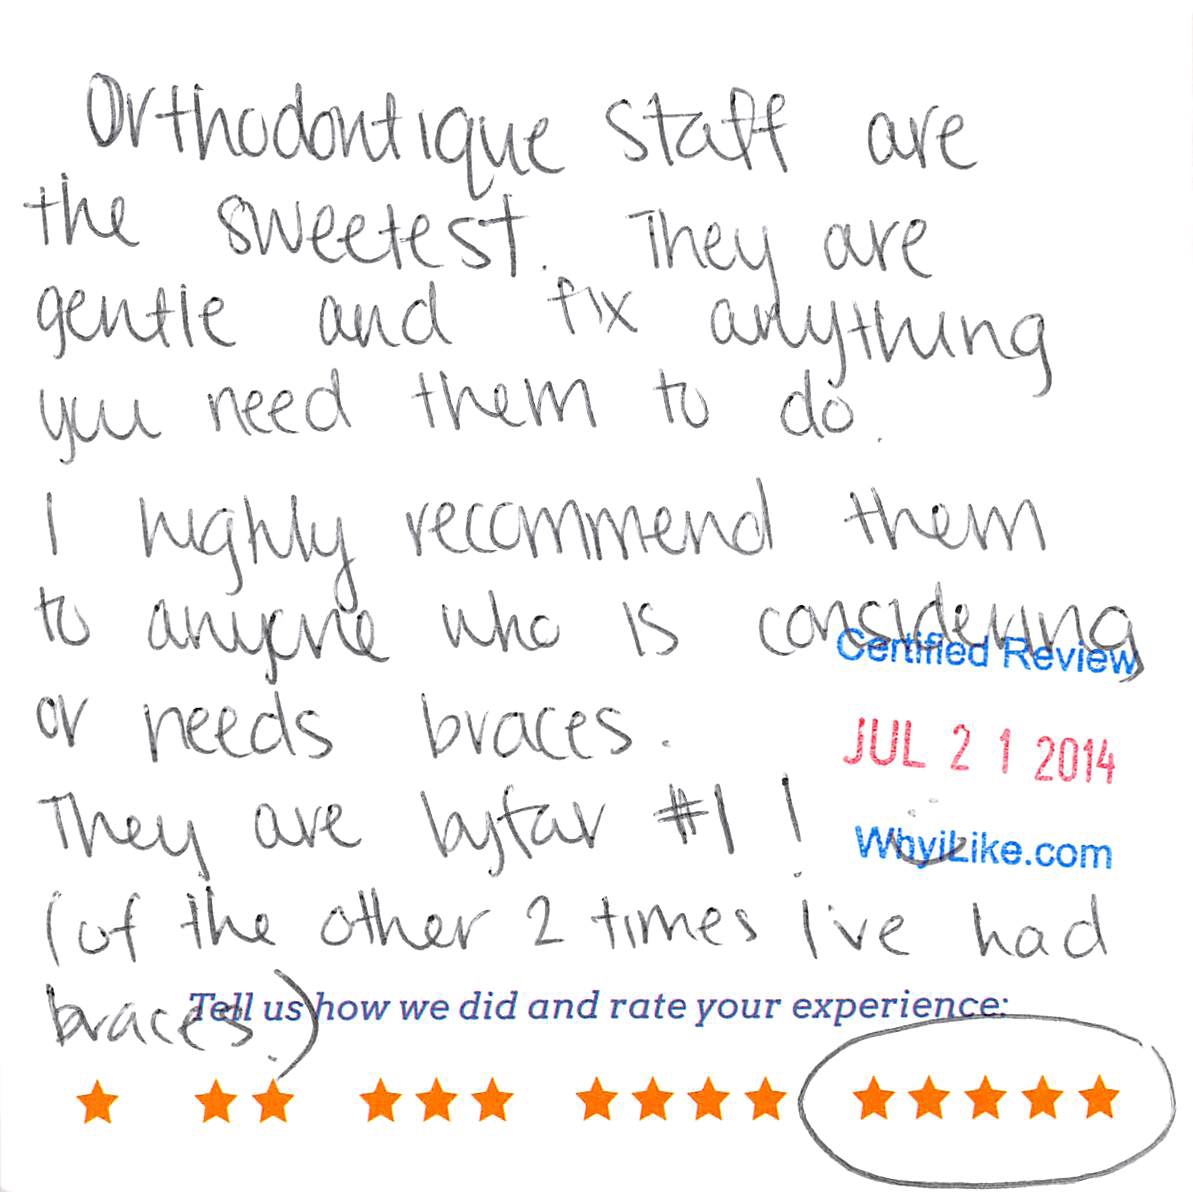 Orthodontique staff are
the sweetest. They are
gentle and fix anything
you need them to do.
I highly recommend them
to anyone who is considering
Certified Review
or needs braces.
JUL 21 2014
They are byfar #1 !
WhyiLike.com
(of the other 2 times I've had
braces.)
Tell us how we did and rate your experience: